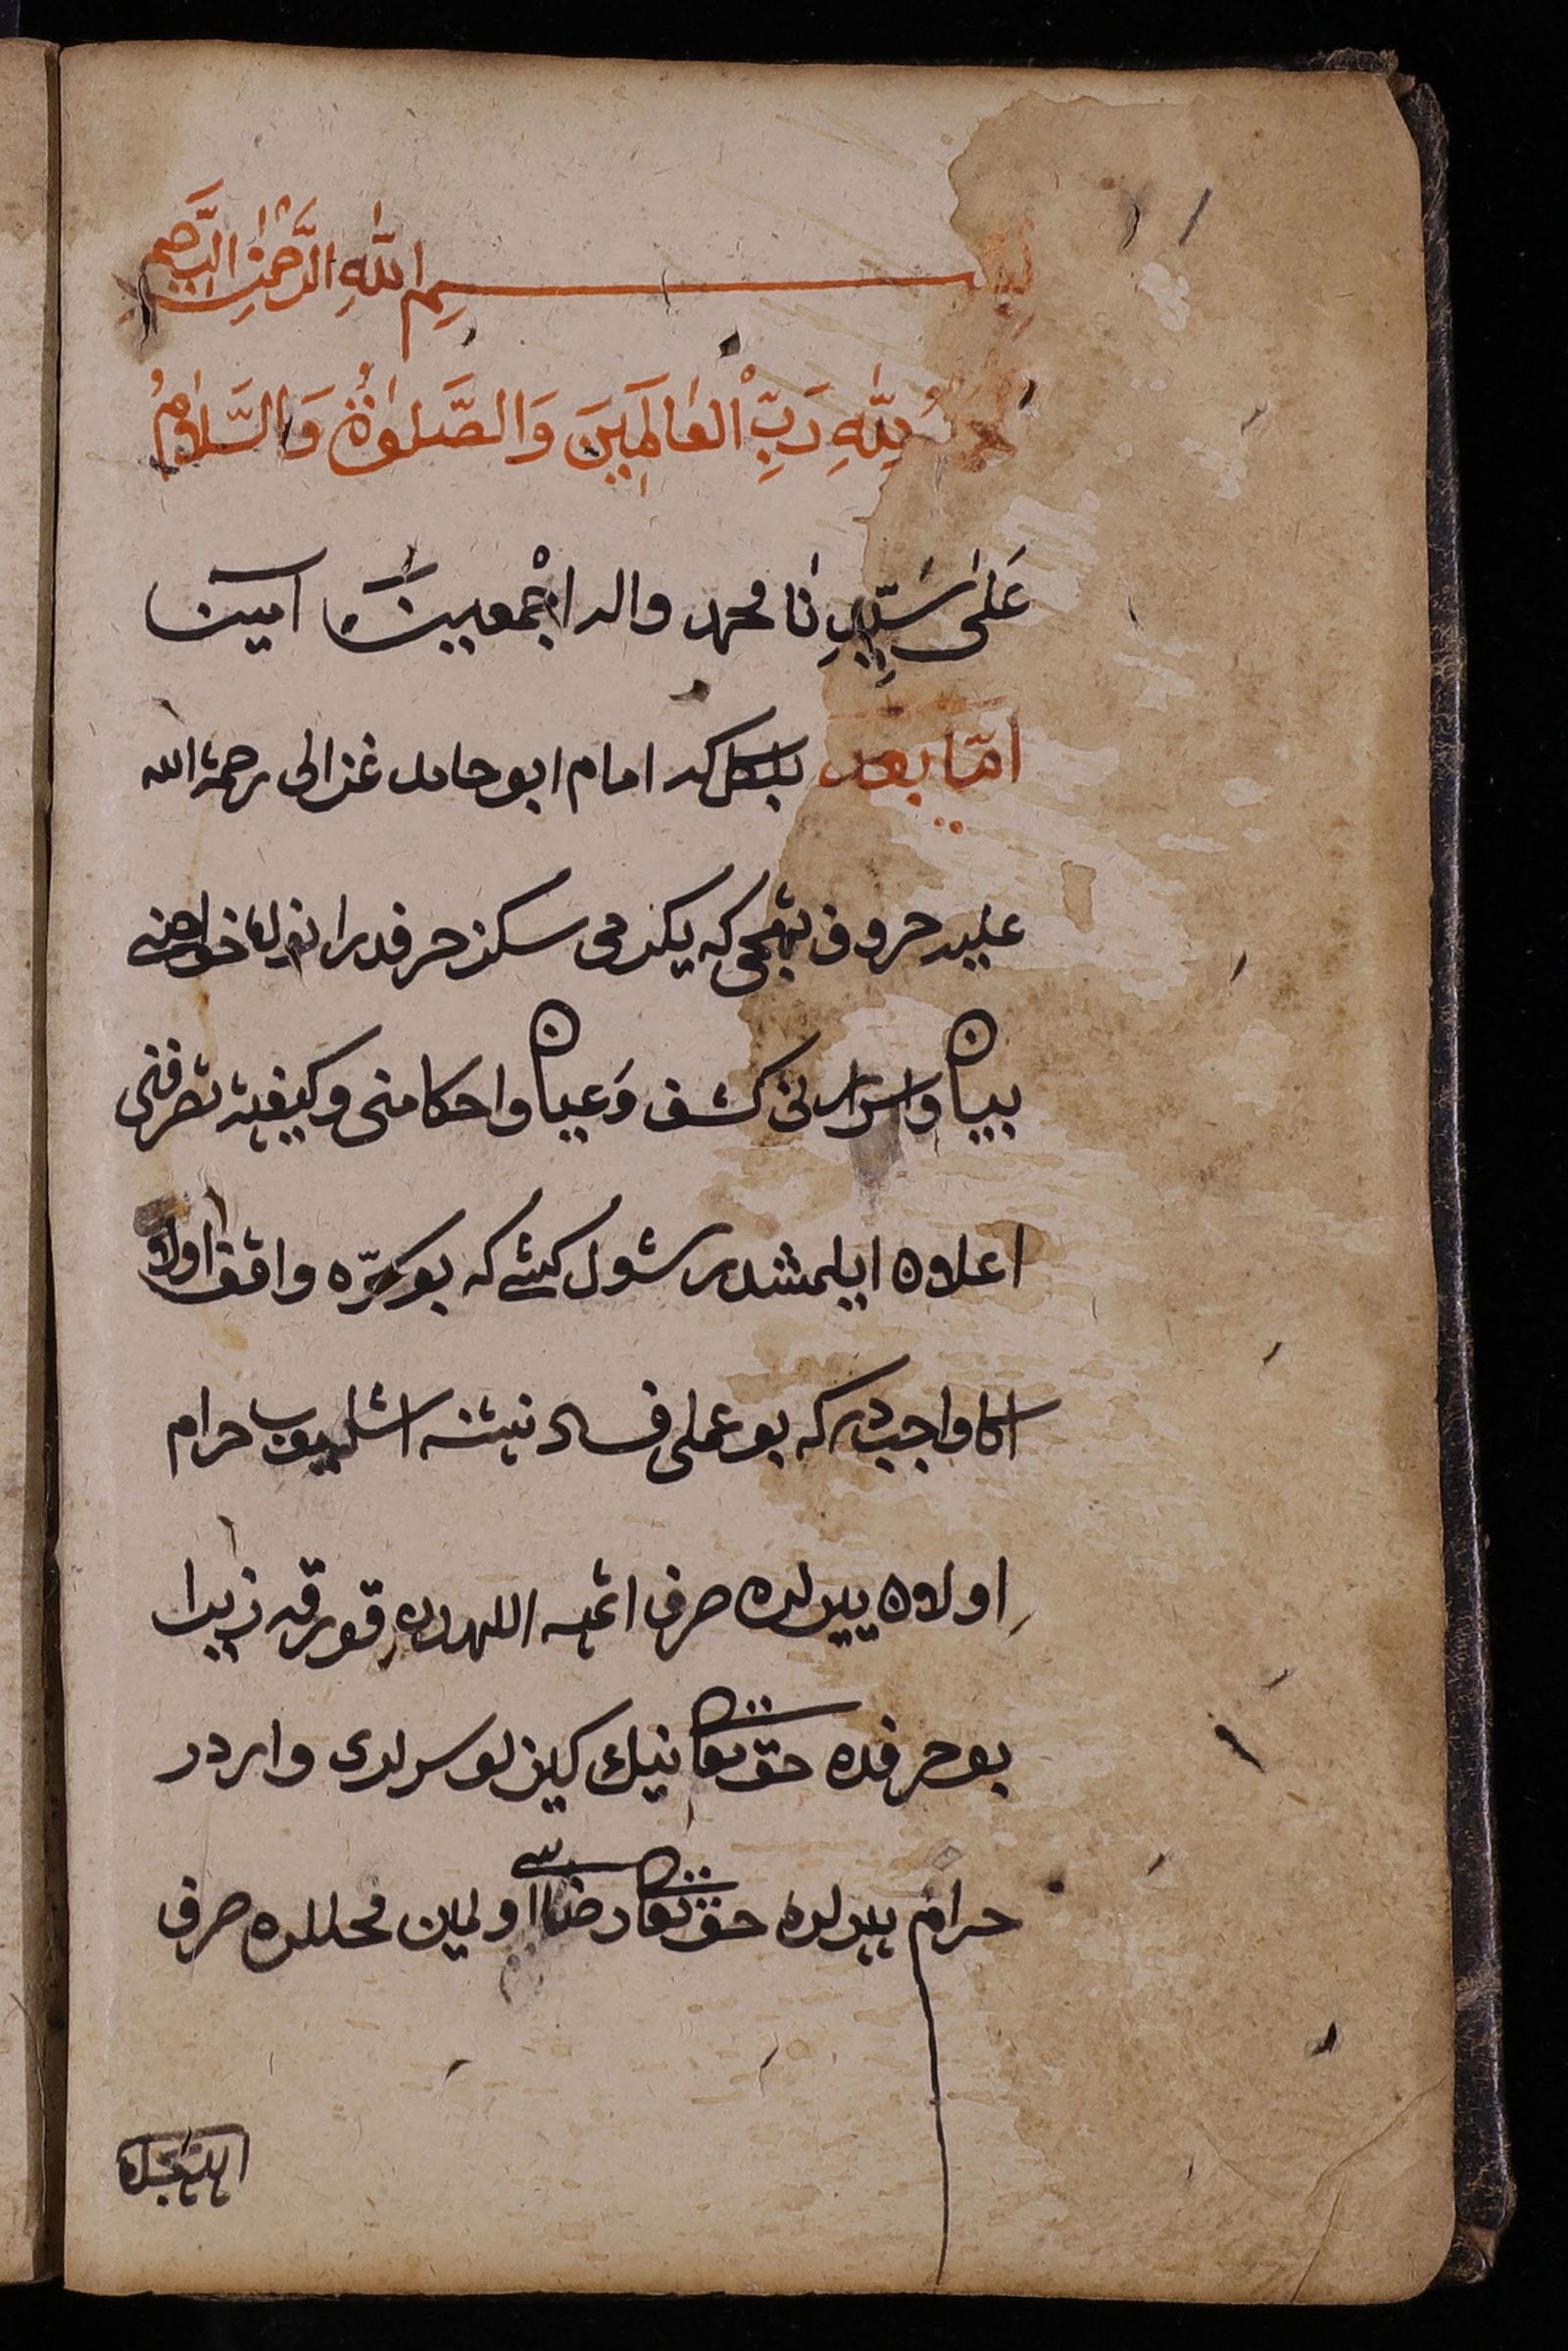 بسم اللهِ الرَّحْمٰنِ الرَّحِيمِ
الحمدُ لِلّٰهِ رَبِّ الْعَالَمِينَ وَالصَّلٰوةُ وَالسَّلَامُ
عَلٰى سَيِّدِنَا محمد واله اجْمعين امين
امّا بعد بلكل كه امام ابو حامد غزالى رحمة الله
عليه حروف تهجى كه يكرمى سكز حرفدر انلرك خواصنى
بيان واسرارنى كشف وَعيان واحكامنى وكيفيه تصرفنى
اعلان ايلمشدر شول كشى كه بو سرّه واقف اولا
اكا واجبدر كه بو عملى فساد نيتنه اشليوب حرام
اولان ييرلرده صرف اتميه اللهدن قورقه زيرا
بو حرفده حق تعالى نيك كيزلو سرلرى واردر
حرام ييرلرده حق تعالى رضاسى اولمين محللرده صرف
ايتميه